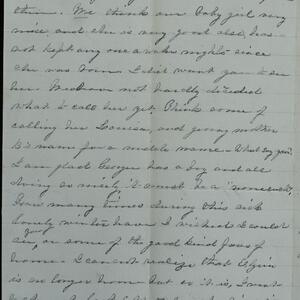 them. We think our baby girl very
nice, and she is very good also, has
not kept any one awake nights since
she was born. I do want you to see
her. We have not hardly decided
what to call her yet. Think some of
calling her Louisa, and giving mother
B's name for a middle name. What say you?
I am glad George has a boy and all
doing so nicely it must be a
How many times during this sick
lonely winter have I wished I could
see you or some of the good kind faces of
home. I can not realize that
is no longer home but so it is, I must